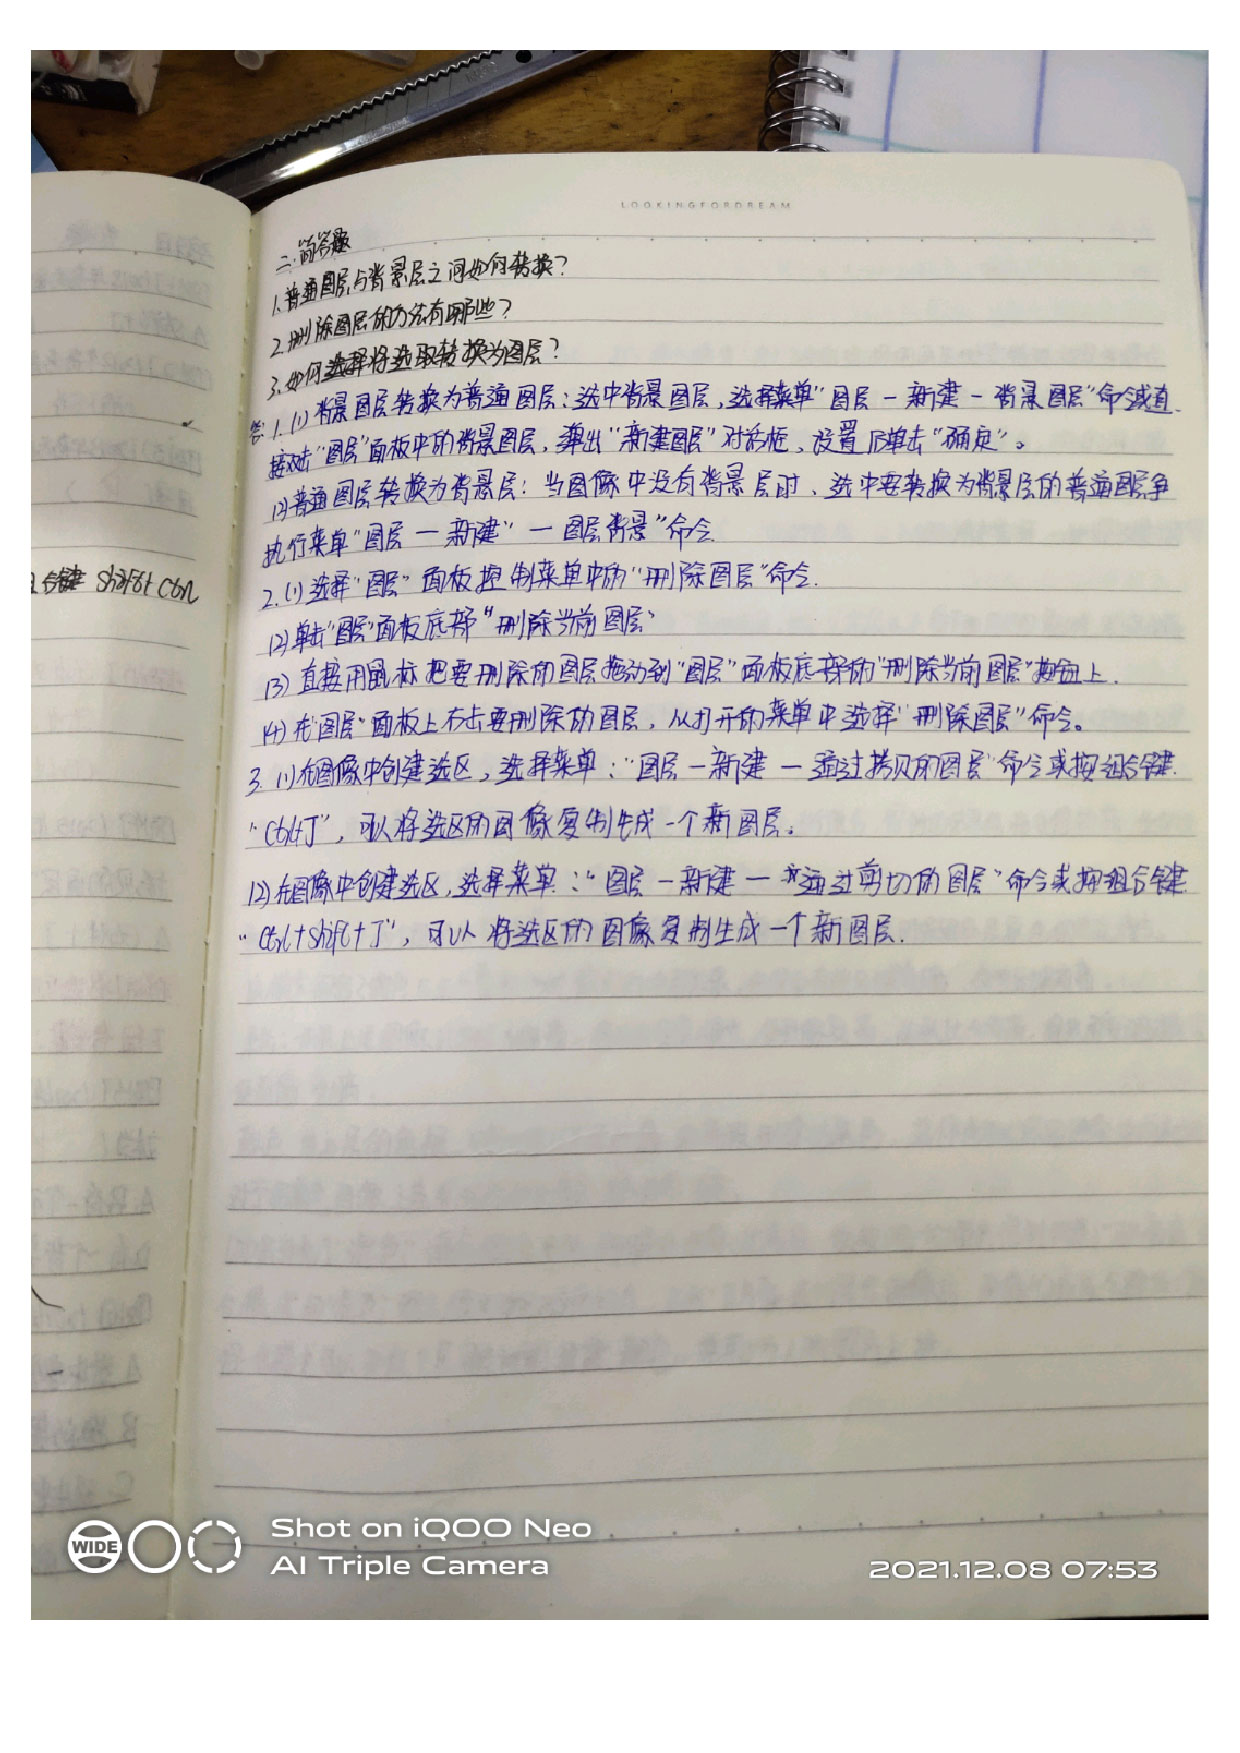 LOOKINGFORDREAM
二.简答题
1.普通图层与背景层之间如何转换?
2.删除图层的方法有哪些?
3.如何选择将选取转换为图层?
答:1.(1)背景图层转换为普通图层:选中背景图层,选择菜单“图层-新建-背景图层”命令或直
接双击“图层”面板中的背景图层,弹出“新建图层”对话框,设置后单击“确定”。
(2)普通图层转换为背景层:当图像中没有背景层时、选中要转换为背景层的普通图层
执行菜单“图层—新建”—图层背景”命令
2.(1)选择“图层”面板控制菜单中的“删除图层”命令.
(2)单击“图层”面板底部“删除当前图层”
(3)直接用鼠标把要删除的图层拖动到“图层”面板底部的“删除当前图层”按钮上.
(4)在“图层”面板上右击要删除的图层,从打开的菜单中选择“删除图层”命令。
3.(1)在图像中创建选区,选择菜单:“图层-新建-通过拷贝的图层”命令或按组合键
“Ctrl+J”,可以将选区的图像复制生成一个新图层.
(2)在图像中创建选区,选择菜单:“图层-新建-通过剪切的图层”命令或按组合键
“Ctrl+shift+J”,可以将选区的图像复制生成一个新图层.
合键 Shift Ctrl
WIDE
Shot on iQOO Neo
AI Triple Camera
2021.12.08 07:53